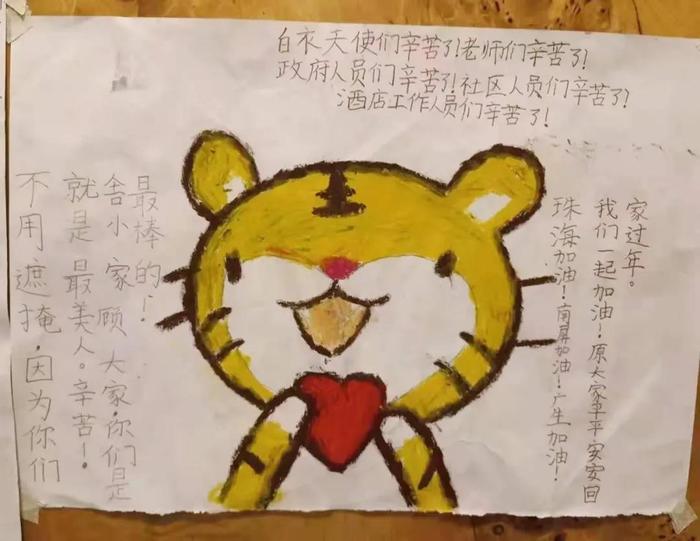 白衣天使们辛苦了!老师们辛苦了!
政府人员们辛苦了!社区人员们辛苦了?
酒店工作人员们辛苦了!
不用遮掩.因为你们
就是最美人。辛苦!
舍小家顾大家.你们是
最棒的!
珠海加油!南屏加油!广生加油!
我们一起加油!原大家平平安安回
家过年。